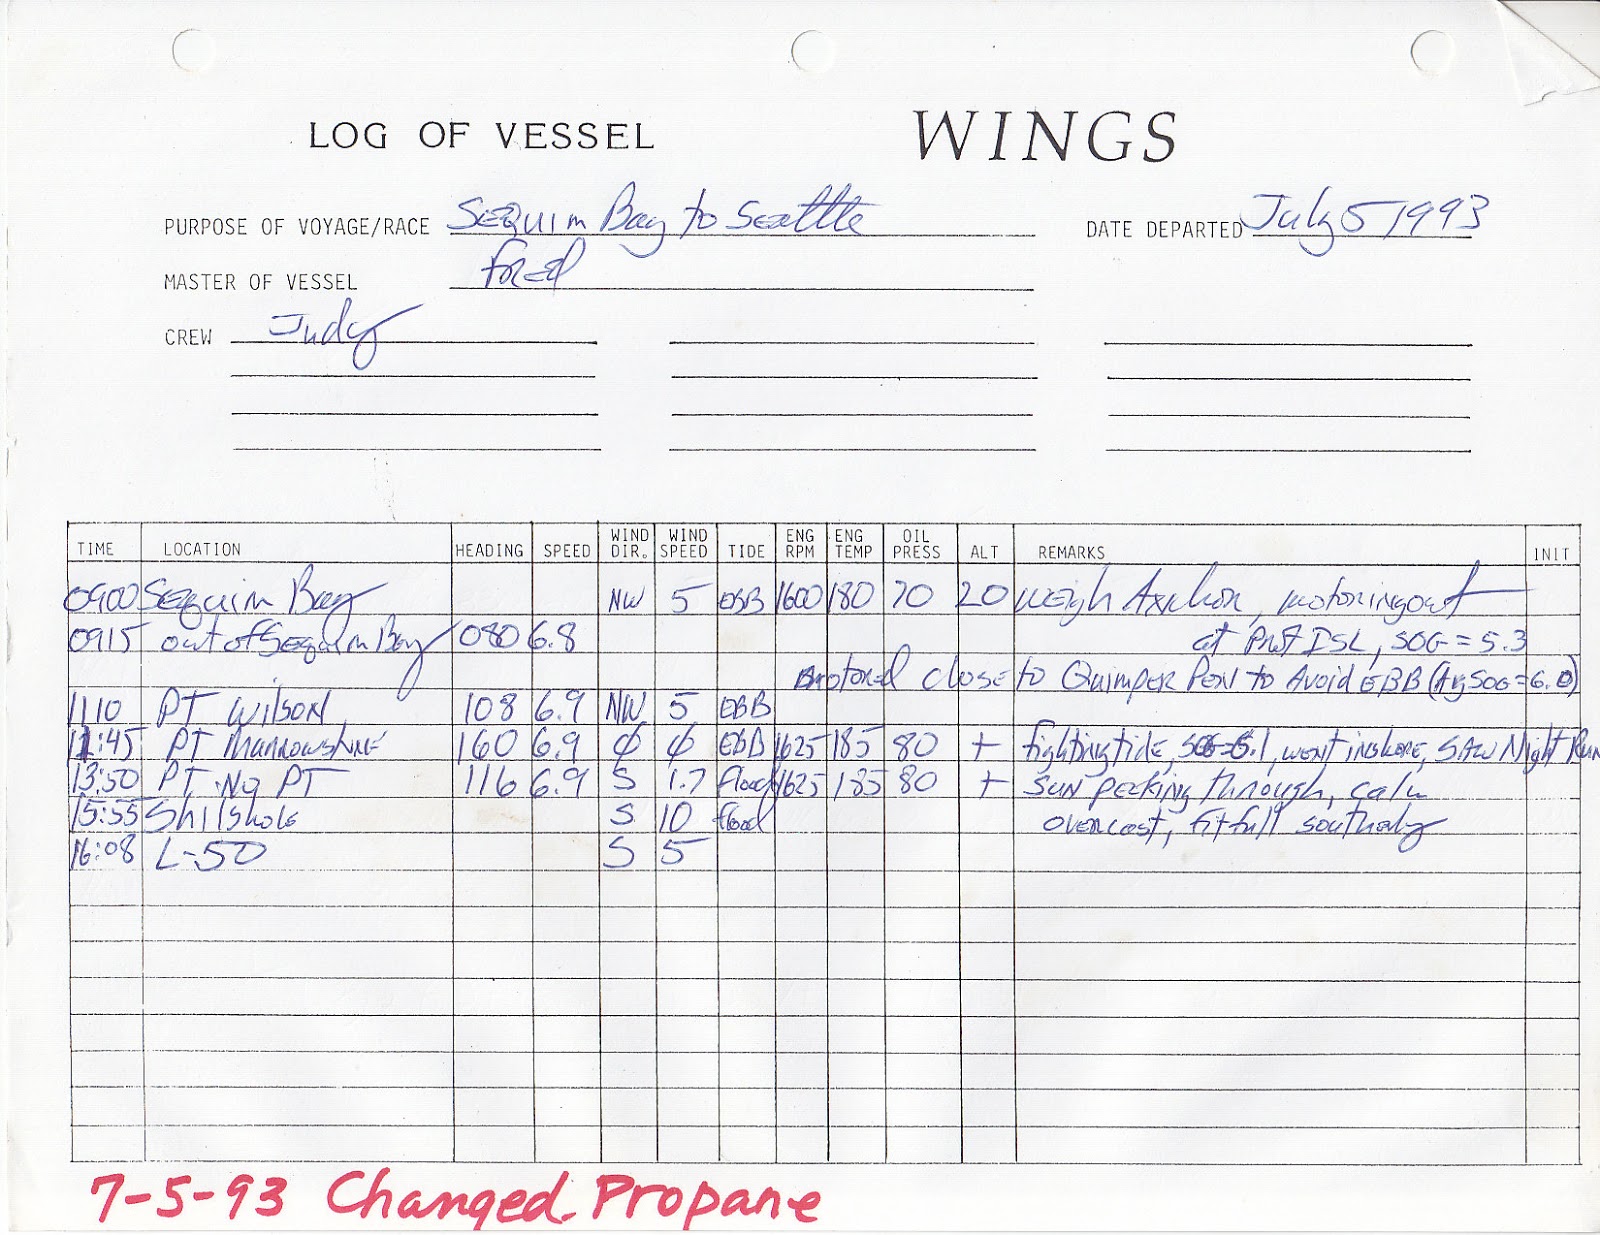 LOG OF VESSEL WINGS
PURPOSE OF VOYAGE/RACE Sequim Bay to Seattle DATE DEPARTED July 5 1993
MASTER OF VESSEL Fred
CREW Judy
TIME LOCATION HEADING SPEED WIND DIR. WIND SPEED TIDE ENG RPM ENG TEMP OIL PRESS ALT REMARKS INIT
0900 Sequim Bay NW 5 EBB 1600 180 70 20 Weigh Anchor, motoring out
0915 out of Sequim Bay 080 6.8 at Prot ISL, SOG = 5.3
motored close to Quimper Pen to Avoid EBB (Av SOG = 6.0)
1110 PT Wilson 108 6.9 NW 5 EBB
11:45 PT Marrowstone 160 6.9 ϕ ϕ EBB 1625 185 80 + fighting tide, SOG=5.1, went inshore, SAW Night Run
13:50 PT No PT 116 6.9 S 1.7 flood 1625 185 80 + Sun peeking through, calm
15:55 Shilshole S 10 flood overcast, fitfull southerly
16:08 L-50 S 5
7-5-93 Changed Propane